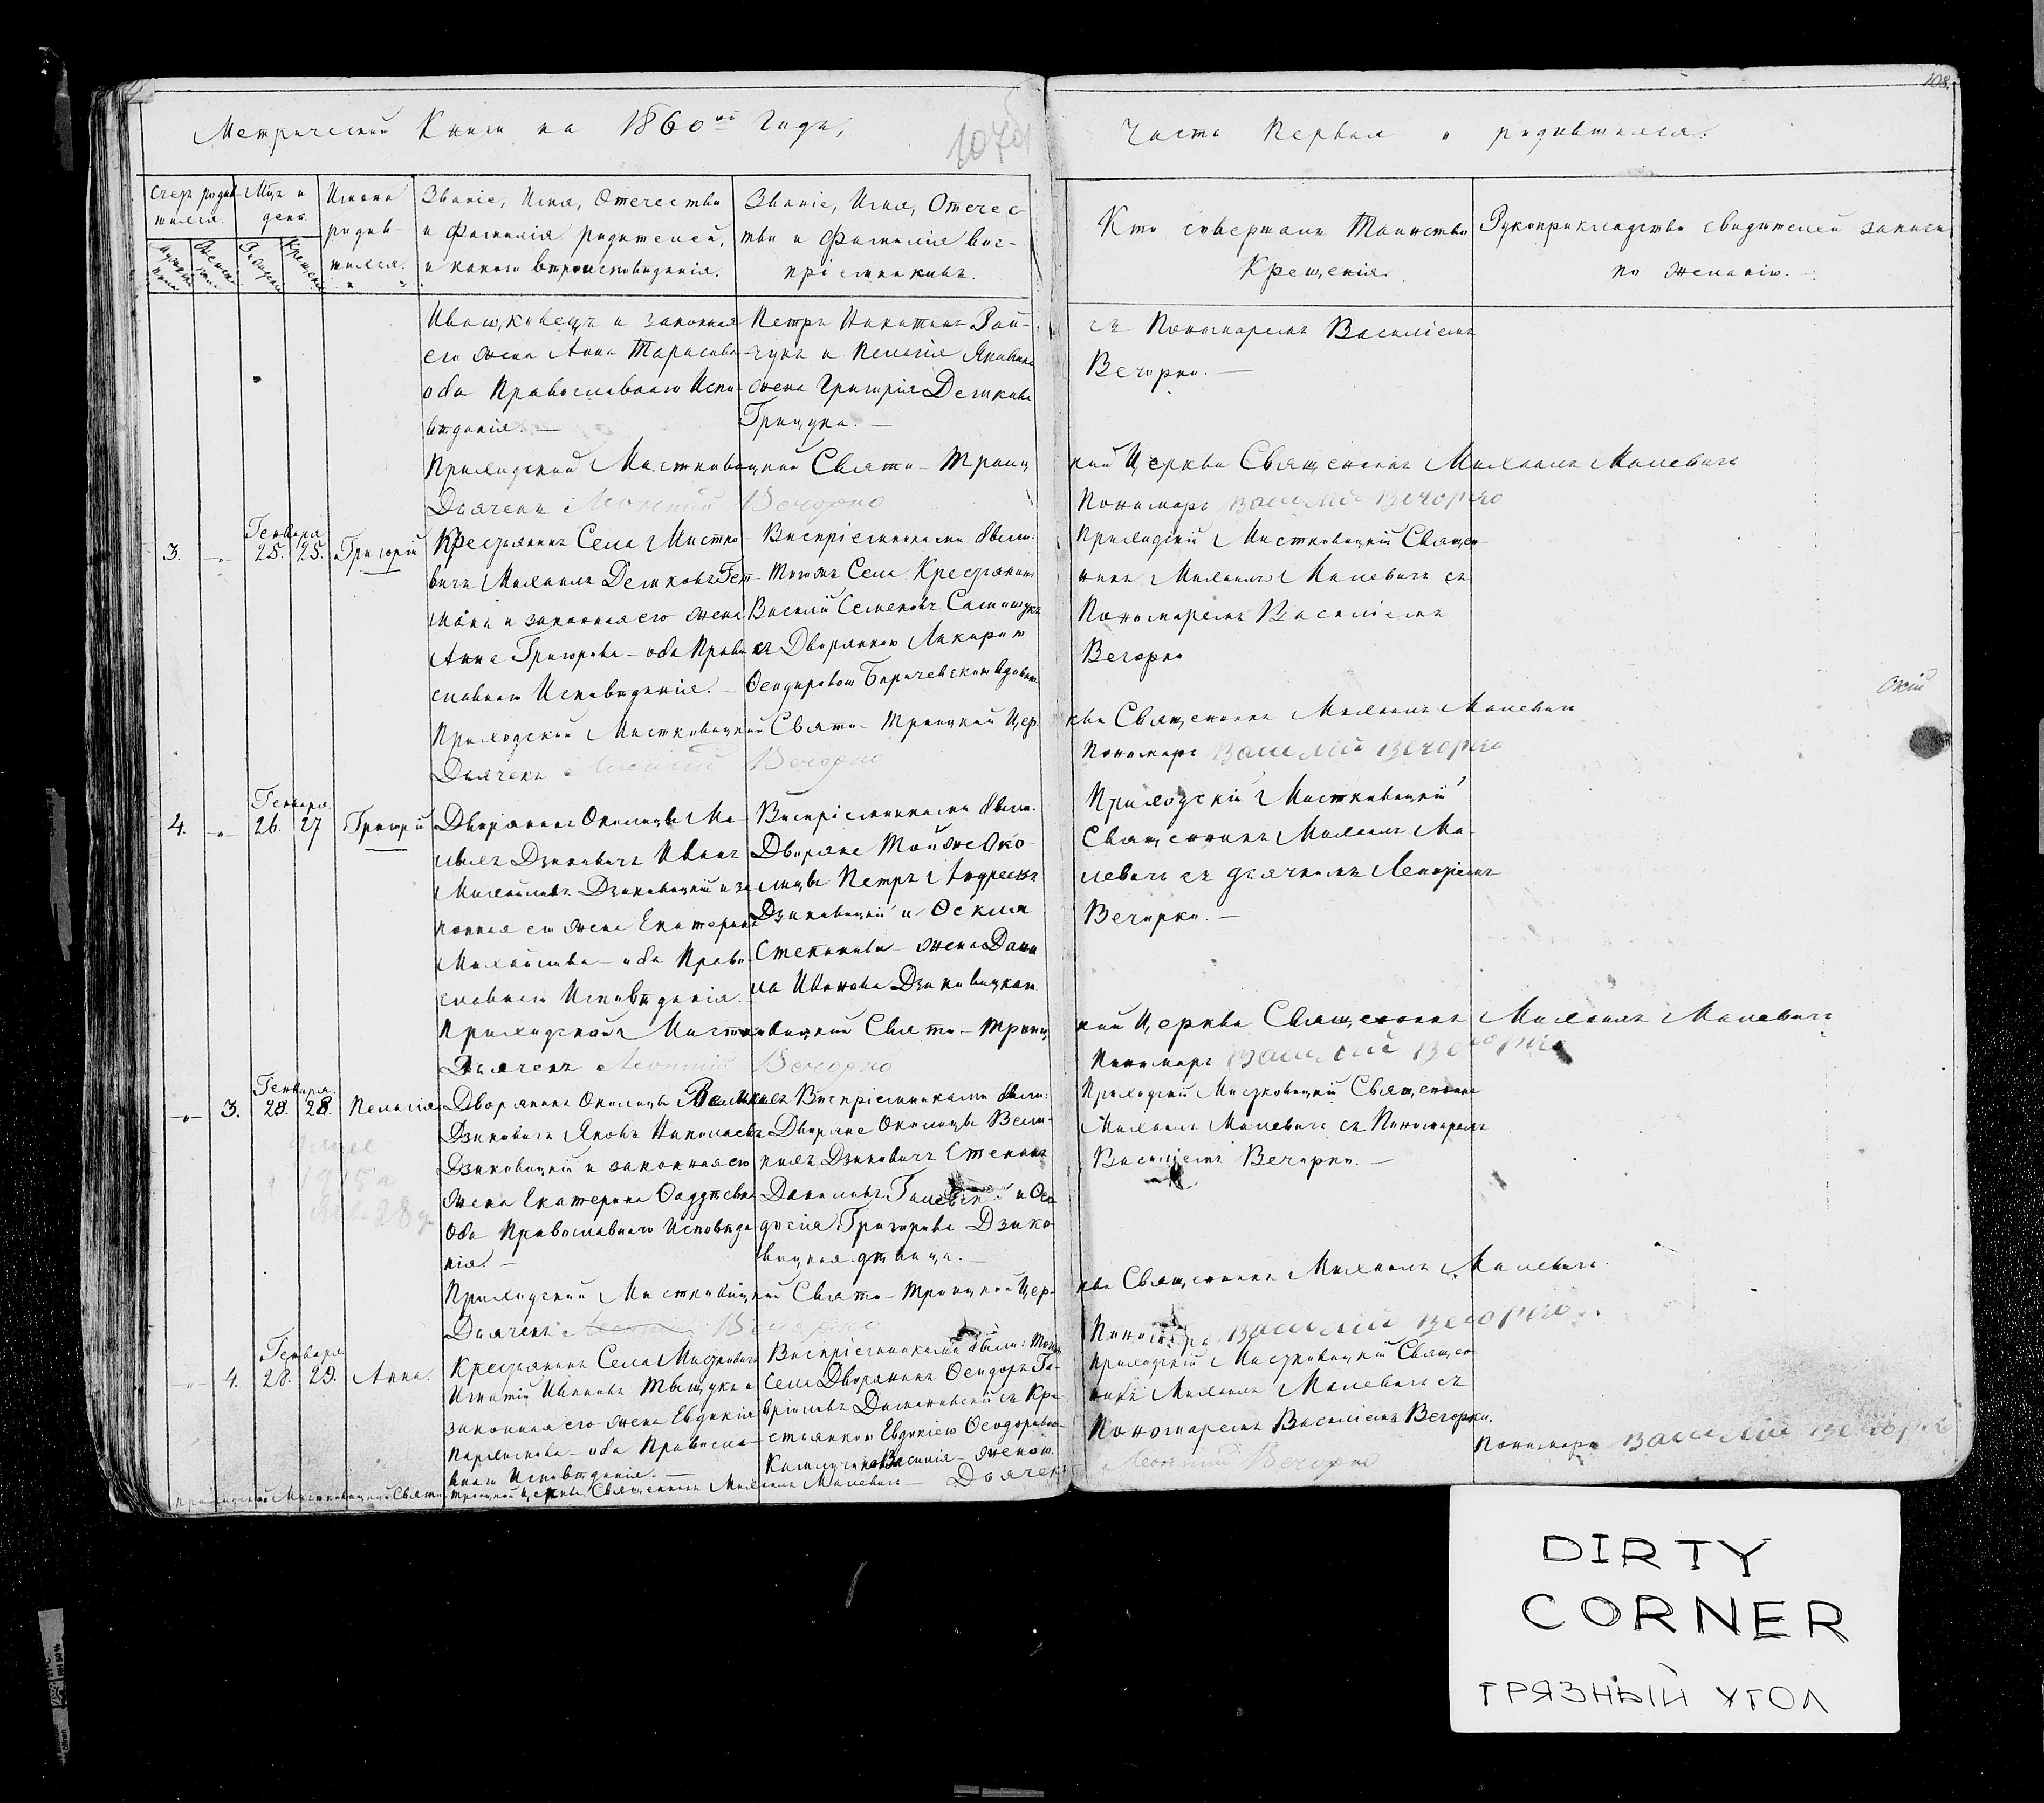 Метрической Книги на 1860ый Годъ,
107об
Часть Первая о родившихся.
108.
Счетъ родив-
шихся.
Мцъ и
день.
Имена
родив-
шихся.
Званіе, Имя, Отечество
и Фамилія родителей,
и какого вѣроисповѣданія.
Званіе, Имя, Отчес-
тво и Фамилія вос-
пріемниковъ.
Кто совершалъ Таинство
Крещенія.
Рукоприкладство свидѣтелей записи
по желанію.
и законная
его жена Анна Тарасова
оба Православнаго Испо-
вѣданія. —
Петръ Никитинъ
и Пелагія Яковлева
жена Григорія Демкова
Грицука. —
съ Пономаремъ Василіемъ
Вечорко. —
Приходской Мистковицкой Свято-Троиц
кой Церкви Священникъ Михаилъ Малевичъ
Дьячекъ Леонтій Вечорко
Пономарь Василій Вечорко
3.
Генваря
25. 25.
Григорій
Крестьянинъ Села Мистко-
вичъ Михаилъ Демковъ Гет-
манъ и законная его жена
Анна Григорова - оба Право
славнаго Исповѣданія. —
Воспріемниками были:
Тогожъ Села Крестьянинъ
Василій Семеновъ
съ Дворянкою Макарою
Феодоровою
Приходскій Мистковицкій Священ-
никъ Михаилъ Малевичъ съ
Пономаремъ Василіемъ
Вечорко
скій
Приходской Мистковицкой Свято-Троицкой Цер-
кви Священникъ Михаилъ Малевичъ
Дьячекъ Леонтій Вечорко
Пономарь Василій Вечорко
4.
Генваря
26. 27
Григорій
Дворянинъ Околицы Ма-
лыхъ Дзиковичъ Иванъ
Михайловъ Дзиковицкій и за
конная его жена Екатерина
Михайлова - оба Право-
славнаго Исповѣданія.
Воспріемниками были:
Дворяне Той же Око-
лицы Петръ Андреевъ
Дзиковицкій и Фекла
Степанова - жена Дани
ла Иванова Дзиковицкаго
Приходскій Мистковицкій
Священникъ Михаилъ Ма-
левичъ съ дьячкомъ Леонтіемъ
Вечорко. —
Приходской Мистковицкой Свято-Троиц
кой Церкви Священникъ Михаилъ Малевичъ
Дьячекъ Леонтій Вечорко
Пономарь Василій Вечорко
3.
Генваря
28. 28.
Пелагія
Дворянинъ Околицы Великихъ
Дзиковичъ Яковъ Николаевъ
Дзиковицкій и законная его
жена Екатерина Фаддѣева
оба Православнаго Исповѣда
нія. —
Воспріемниками были:
Дворяне Околицы Вели-
кихъ Дзиковичъ Степанъ
Даниловъ и Фео
досія Григорова Дзико-
вицкая дѣвица. —
Приходскій Мистковицкій Священникъ
Михаилъ Малевичъ съ Пономаремъ
Василіемъ Вечорко. —
1915 г
28
Приходской Мистковицкой Свято-Троицкой Цер-
кви Священникъ Михаилъ Малевичъ
Дьячекъ Леонтій Вечорко
Пономарь Василій Вечорко
4.
Генваря
28. 29.
Анна.
Крестьянинъ Села Мистковичъ
Игнатій Ивановъ и
законная его жена Евдокія
оба Правосла-
внаго Исповѣданія. —
Воспріемниками были: Тогожъ
Села Дворянинъ Феодоръ Га-
вріиловъ съ Кре
стьянкою Евдокіею Феодоровою
Василія женою.
Приходскій Мистковицкій Священ-
никъ Михаилъ Малевичъ съ
Пономаремъ Василіемъ Вечорко.
Приходской Мистковицкой Свято Троицкой Церкви Священникъ Михаилъ Малевичъ — Дьячекъ
Леонтій Вечорко
Пономарь Василій Вечорко
DIRTY
CORNER
ГРЯЗНЫЙ УГОЛ